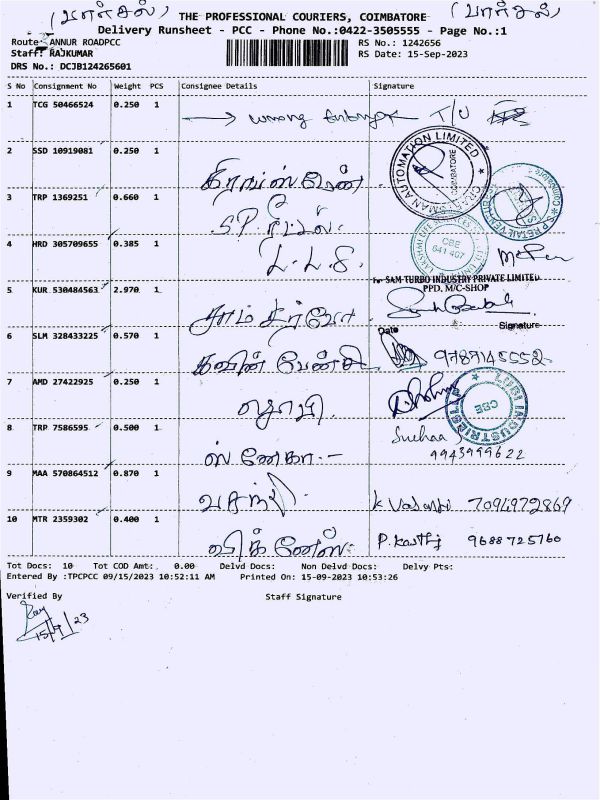 (பார்சல்) (பார்சல்)
THE PROFESSIONAL COURIERS, COIMBATORE
Delivery Runsheet - PCC - Phone No.:0422-3505555 - Page No.:1
Route: ANNUR ROADPCC RS No.: 1242656
Staff: RAJKUMAR RS Date: 15-Sep-2023
DRS No.: DCJB124265601
S No Consignment No Weight PCS Consignee Details Signature
1 TCG 50466524 0.250 1 wrong T/U
2 SSD 10919081 0.250 1
CRI AUTOMATION LIMITED COIMBATORE
3 TRP 1369251 0.660 1 S.P. ரீடல்.
4 HRD 305709655 0.385 1 L.L.G.
CBE 641 407
5 KUR 530484563 2.970 1 சாம் டர்போ
For SAM TURBO INDUSTRY PRIVATE LIMITED
PPD, M/C-SHOP
Date Signature
6 SLM 328433225 0.570 1 கவின் 9789145552
7 AMD 27422925 0.250 1
LUBI INDUSTRIES CBE
8 TRP 7586595 0.500 1 ஸ்னேகா - Snehaa
9943999622
9 MAA 570864512 0.870 1 வசந்தி K Vasanthi 7094972869
10 MTR 2359302 0.400 1 விக்னேஸ். P. Karthi 9688725760
Tot Docs: 10 Tot COD Amt: 0.00 Delvd Docs: Non Delvd Docs: Delvy Pts:
Entered By :TPCPCC 09/15/2023 10:52:11 AM Printed On: 15-09-2023 10:53:26
Verified By Staff Signature
15/9/23